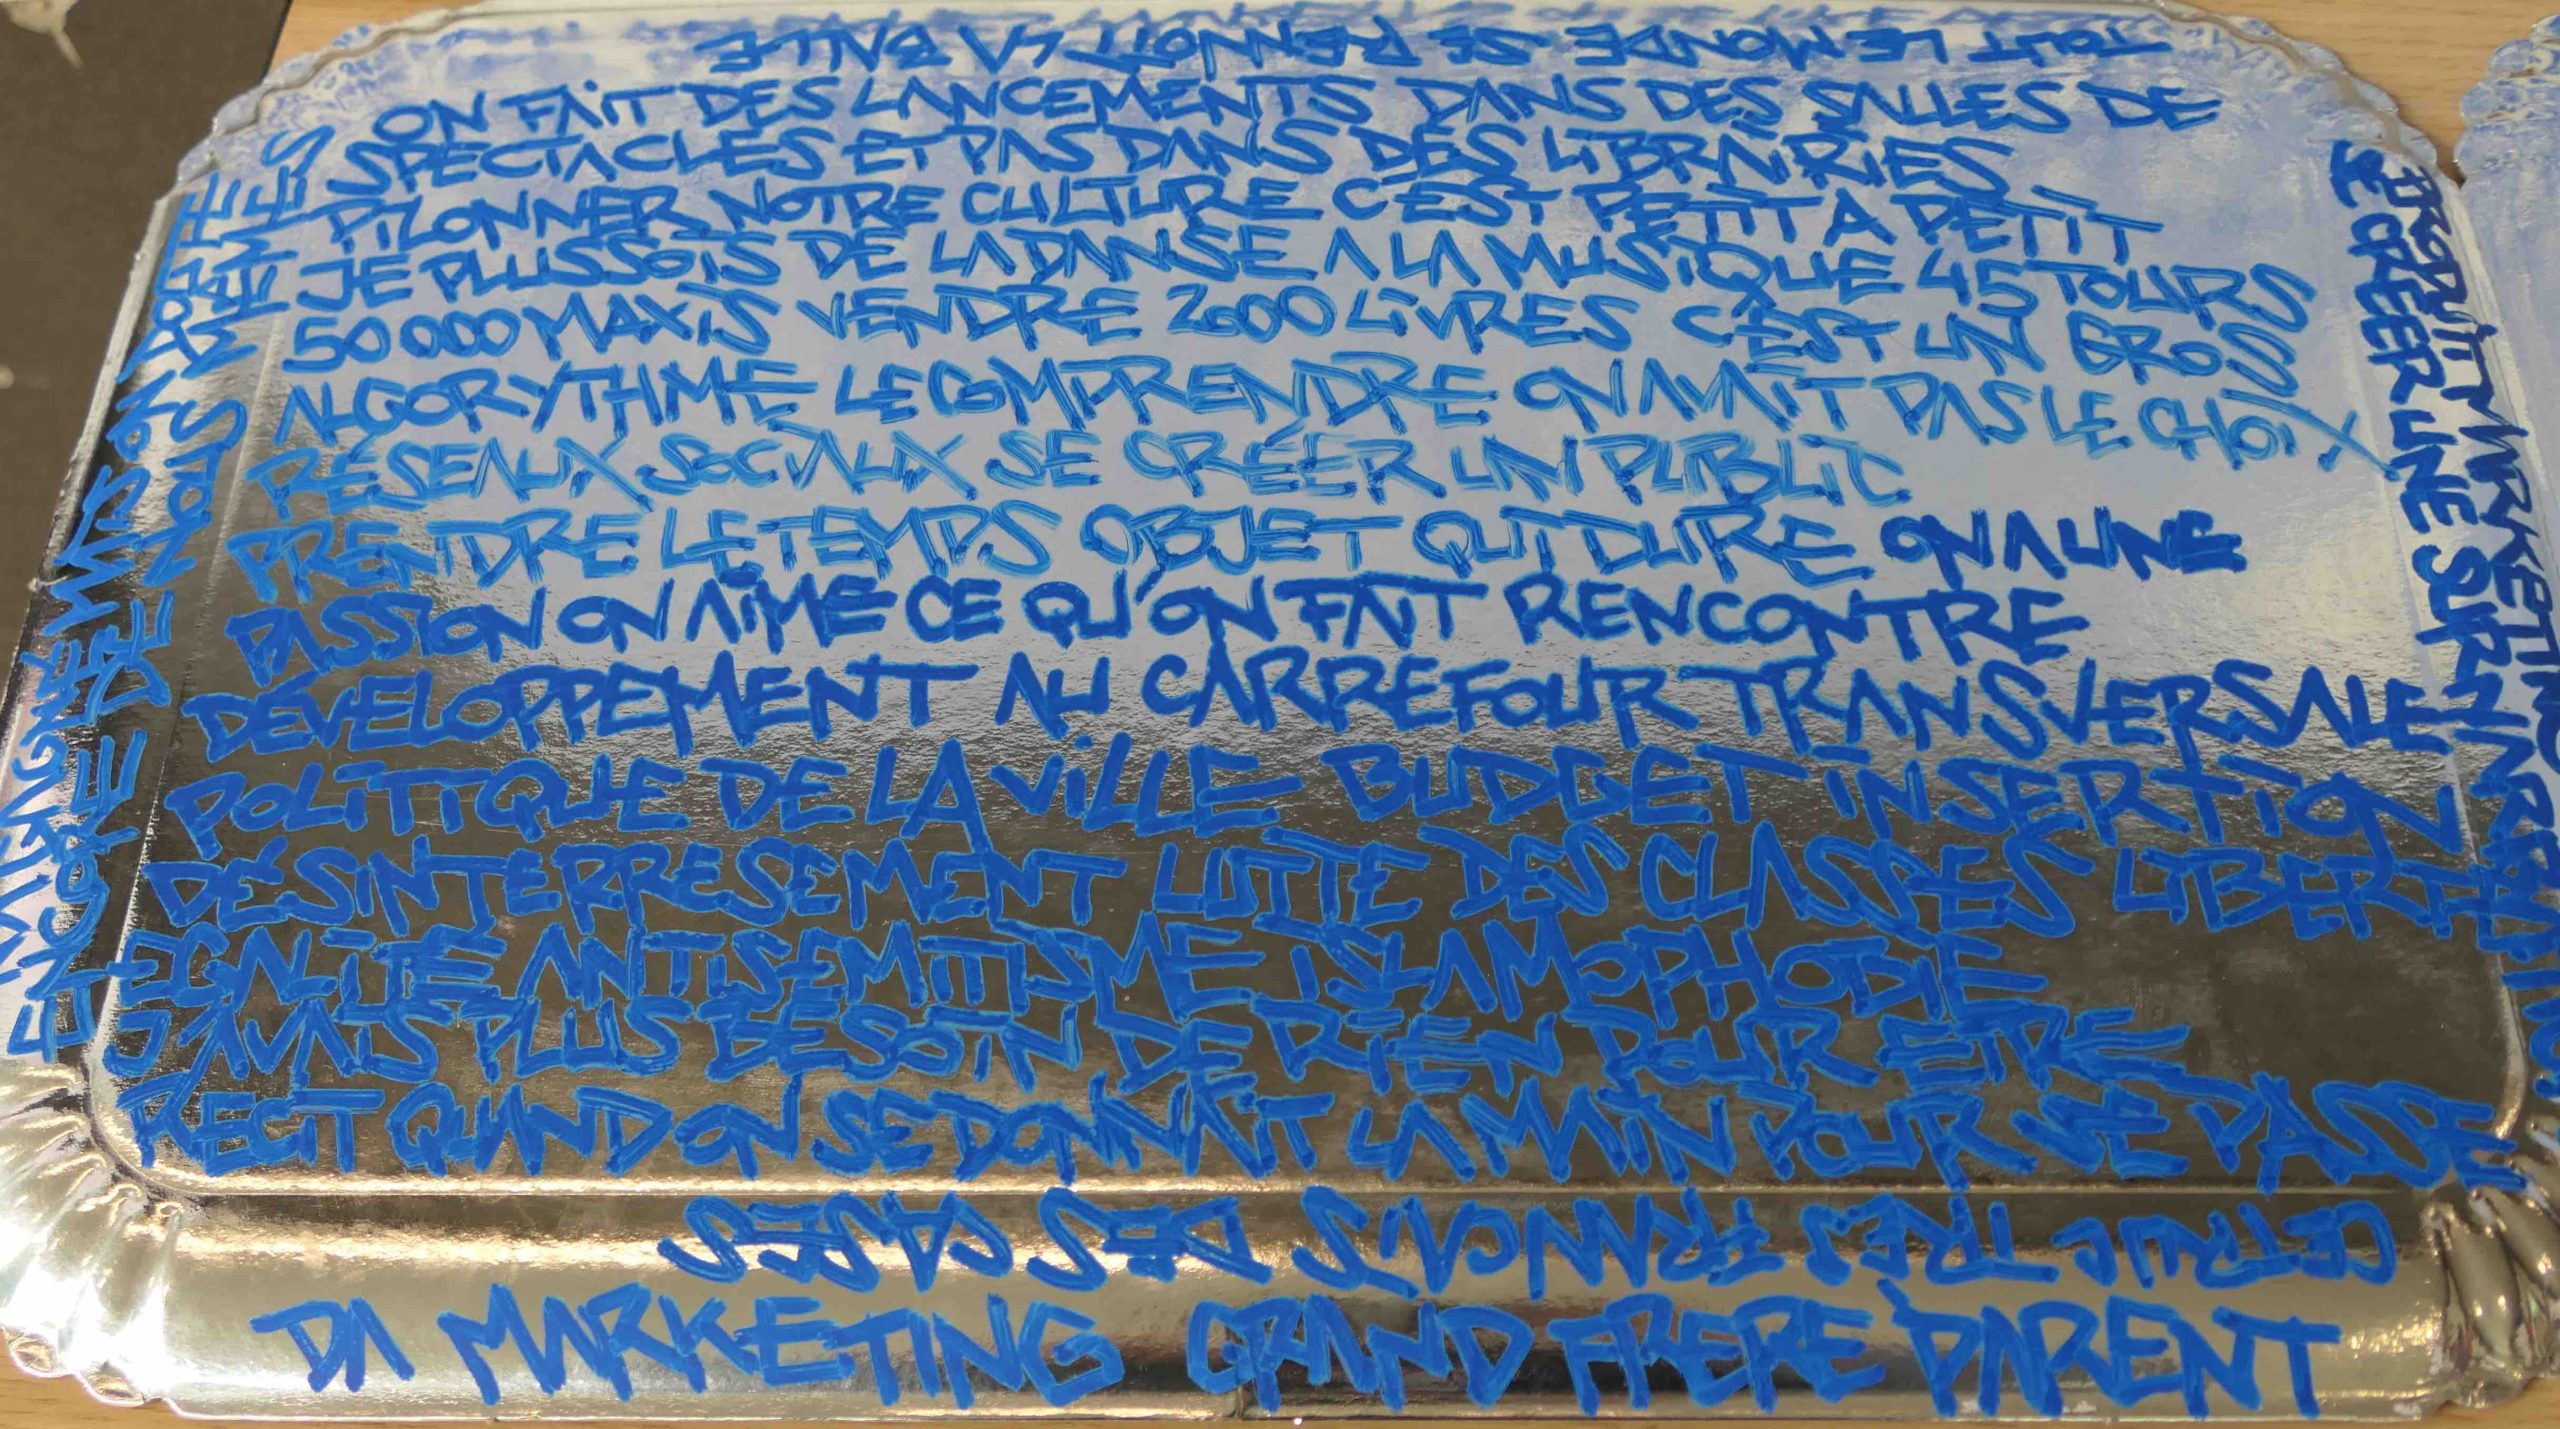 TOUT LE MONDE SE RENVOIT LA BALLE
ON FAIT DES LANCEMENTS DANS DES SALLES DE
SPECTACLES ET PAS DANS DES LIBRAIRIES
PILONNER NOTRE CULTURE C'EST PETIT A PETIT
JE PLUSSOIS DE LA DANSE A LA MUSIQUE 45 TOURS
50 000 MAXIS VENDRE 2600 LIVRES C'EST UN GROS
ALGORYTHME LE COMPRENDRE ON AVAIT PAS LE CHOIX
RÉSEAUX SOCIAUX SE CRÉER UN PUBLIC
PRENDRE LE TEMPS OBJET QUI DURE ON A UNE
PASSION ON AIME CE QU'ON FAIT RENCONTRE
DÉVELOPPEMENT AU CARREFOUR TRANSVERSALE
POLITIQUE DE LA VILLE BUDGET INSERTION
DÉSINTERRESEMENT LUTTE DES CLASSES LIBERTÉ
EGALITÉ ANTISEMITISME ISLAMOPHOBIE
J'AVAIS PLUS BESOIN DE RIEN POUR ETRE
RECIT QUAND ON SE DONNAIT LA MAIN POUR
CE TRUC TRES FRANCAIS DES CASES
DA MARKETING GRAND FRERE PARENT
TEMOIGNE MAIS ON
ENCORE DE NOUS MEMES
PRODUIT MARKETING
SE CREER UNE